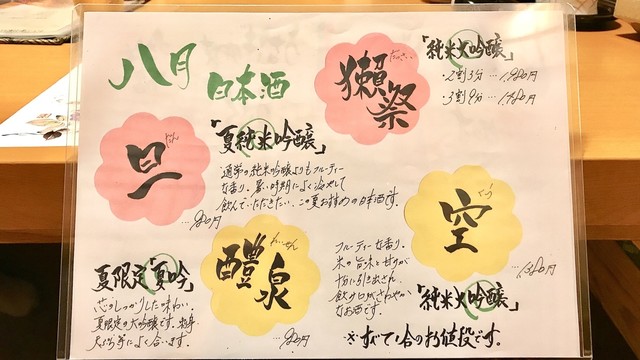 八月
日本酒
獺祭
だっさい
「純米大吟醸」
・2割3分 … 1,980円
・3割9分 … 1,480円
旦
だん
「夏純米吟醸」
通常の純米吟醸よりもフルーティー
な香り。暑い時期によく冷やして
飲んでいただきたい、この夏お勧めの日本酒です。
醴泉
れいせん
夏限定「夏吟」
芯のしっかりした味わい。
夏限定の大吟醸です。
空
くう
フルーティーな香り。
米の旨味と甘みが
十分に引き出され、
飲み口がさわやか
なお酒です。
「純米大吟醸」
※すべて一合のお値段です。